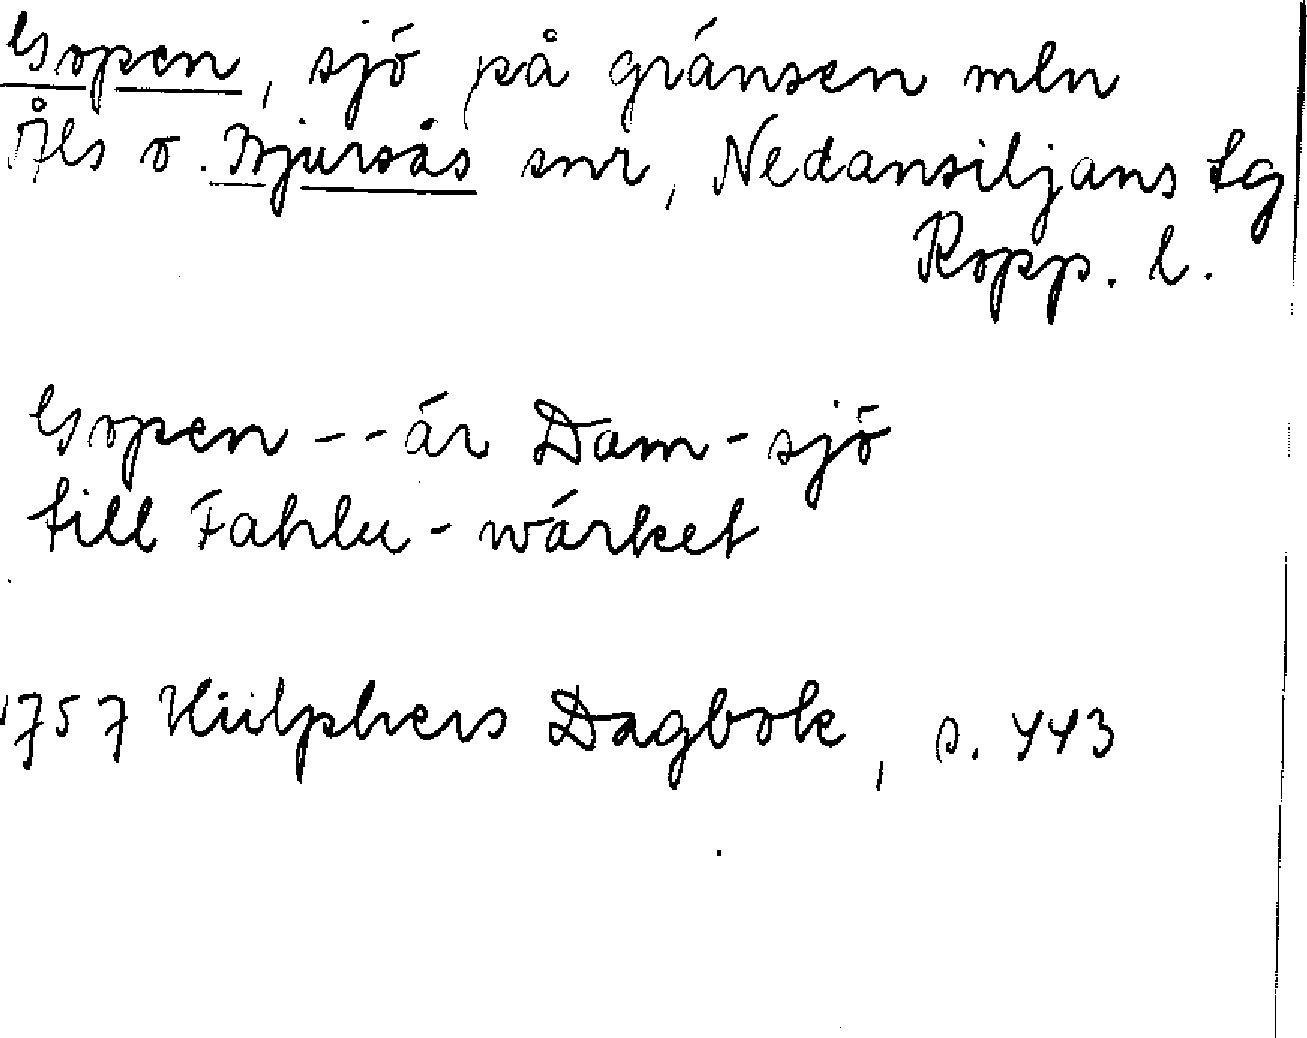 Gopen, sjö på gränsen mln
Åls o. Bjursås snr, Nedansiljans tg
Kopp. l.
Gopen -- är Dam-sjö
till Fahlu-wärket
1757 Hülphers Dagbok, s. 443